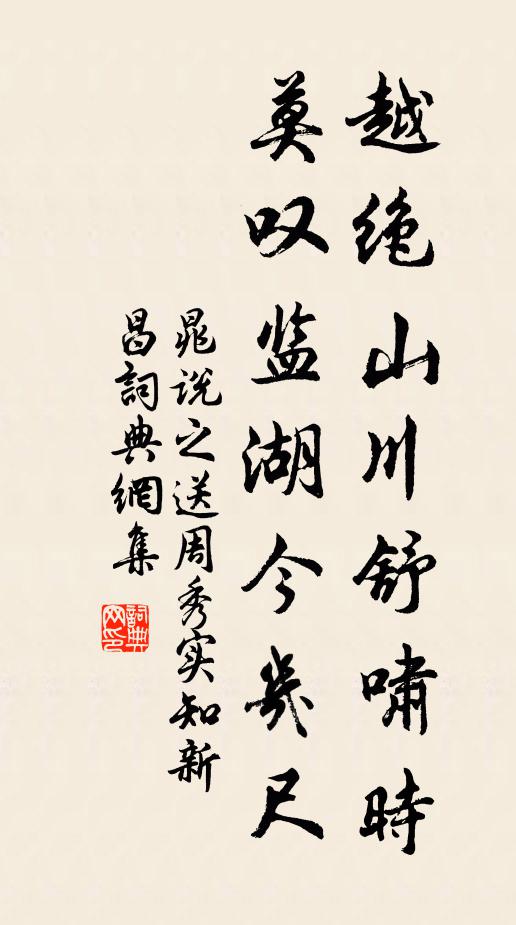 越绝山川舒啸時
莫叹监湖今几尺
晁说之送周秀实知新
昌詞典網集
詞典网印